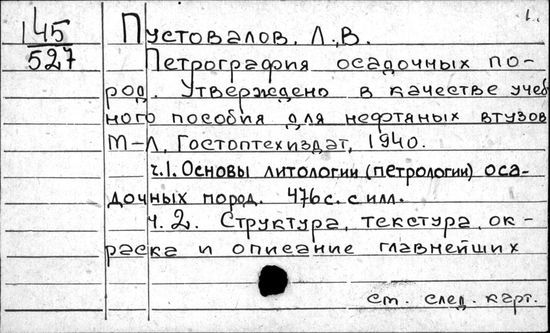 1.
145
527
Пустовалов, Л.В.
Петрография осадочных по-
род. Утверждено в качестве учеб
ного пособия для нефтяных втузов
М-Л, Гостоптехиздат, 1940.
ч.1. Основы литологии (петрологии) оса-
дочных пород. 476с. с илл.
ч. 2. Структура, текстура, ок-
раска и описание главнейших
см. след. карт.